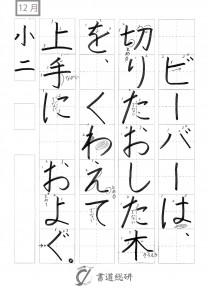 12月
ビーバーは、
切りたおした木
を、くわえて
上手に およぐ。
小二
書道総研